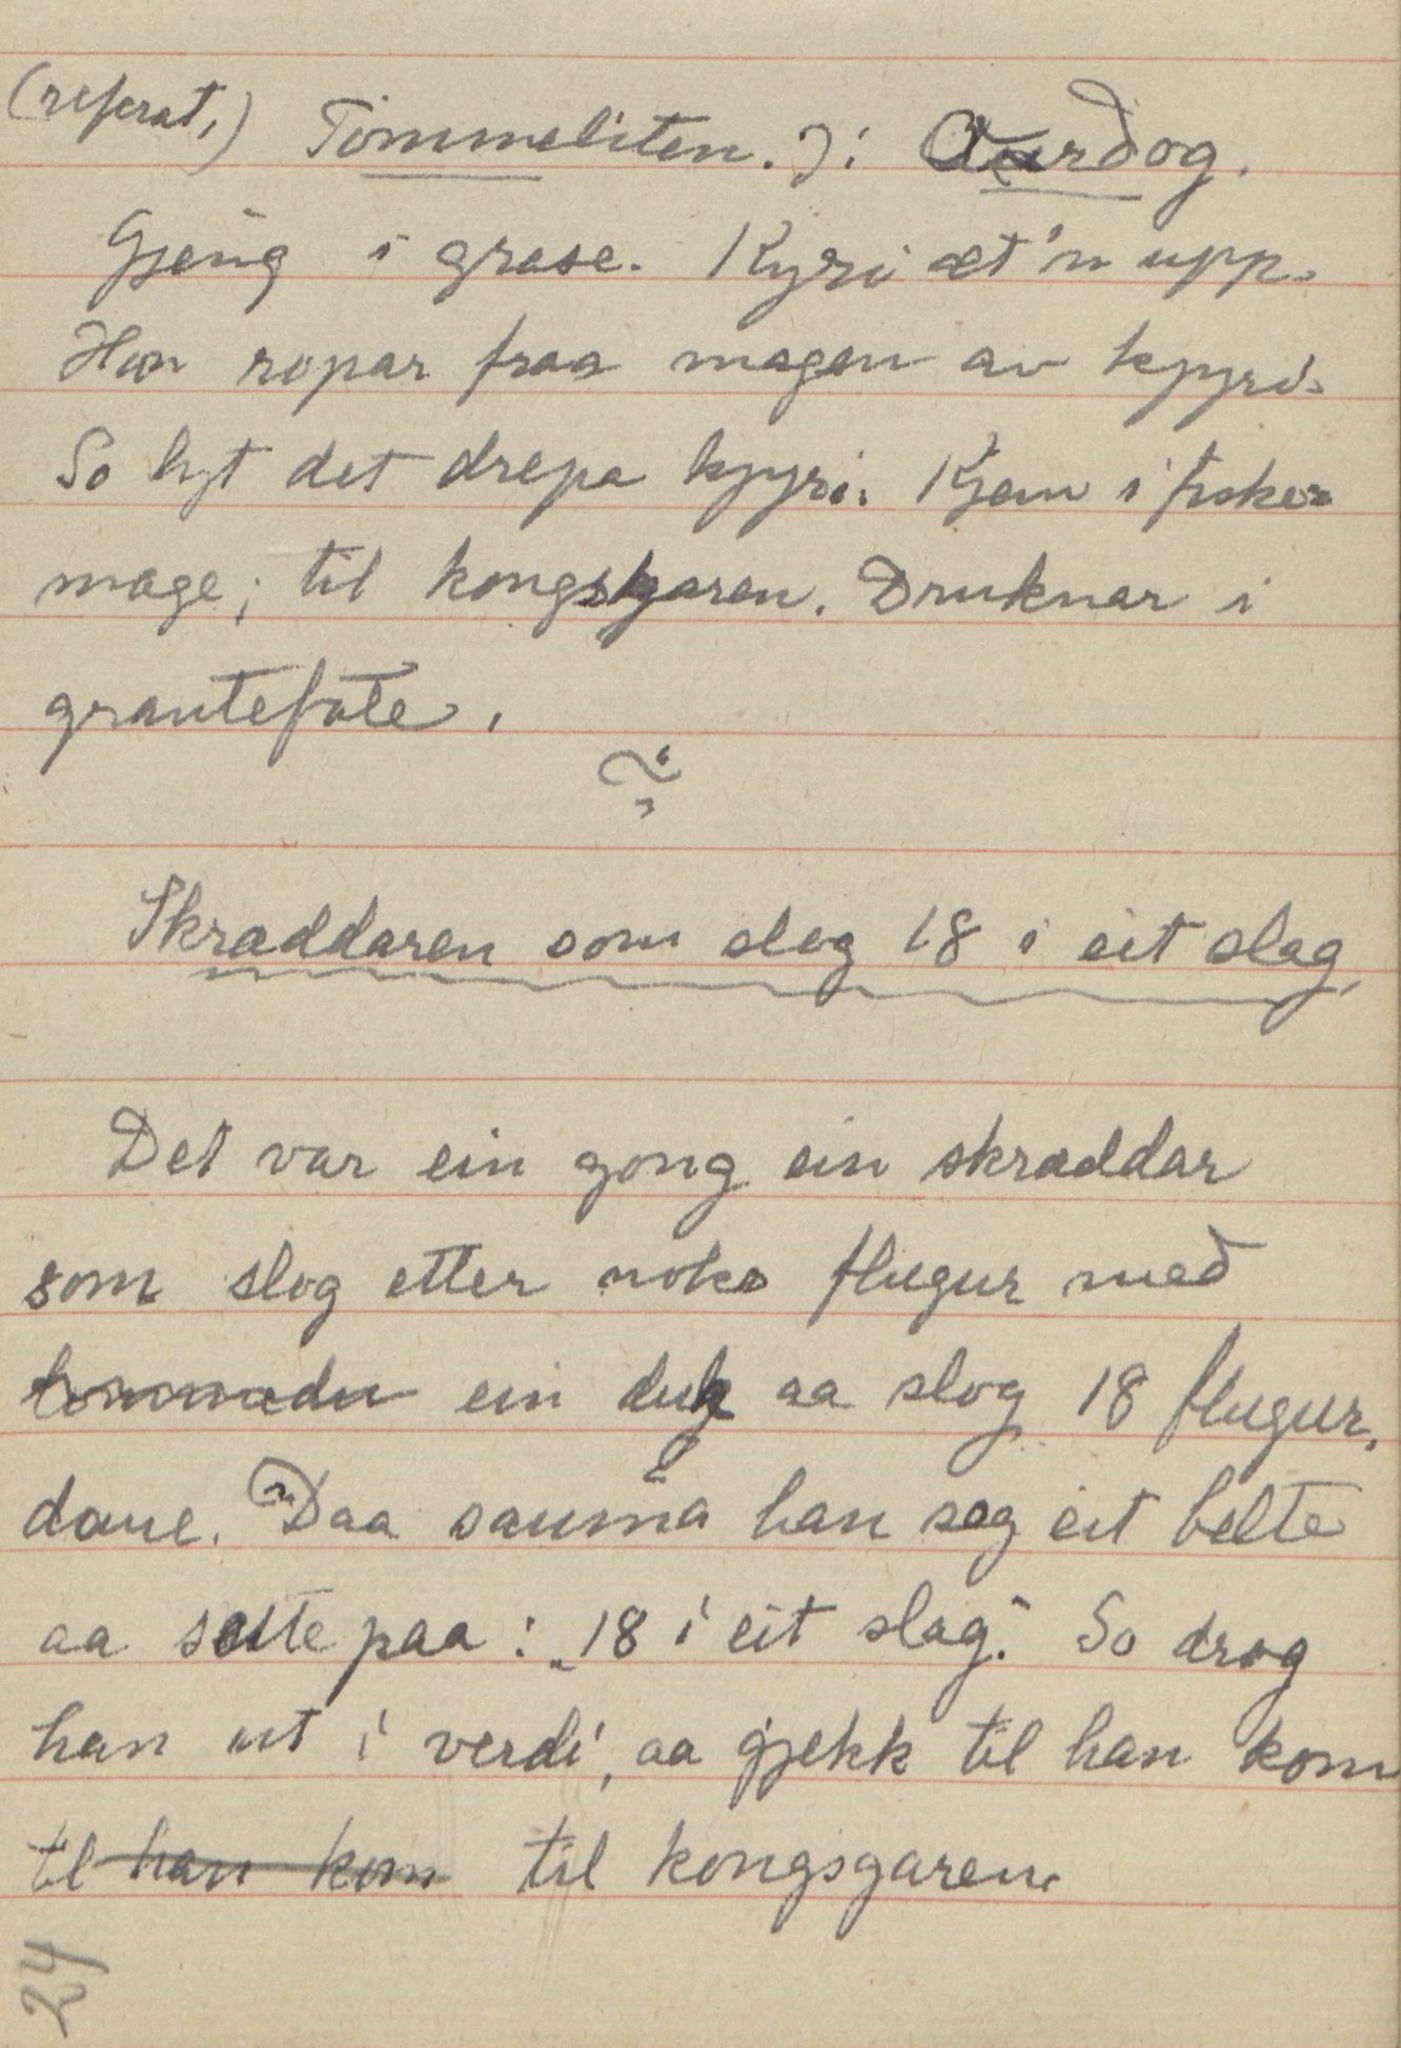 (referat,) Tommeliten. ɔ:
Gjeng i grase. Kyri æt'n upp.
Han ropar fraa magen av kyri.
So lyt det drepa kyri. Kjem i fiske-
mage; til kongsgaren. Druknar i
grautefate.
Skræddaren som slog 18 i eit slag,
Det var ein gong ein skræddar
som slog etter noko flugur med
ein duk aa slog 18 flugur,
daue. Daa sauma han seg eit belte
aa sette paa: „18 i eit slag". So drog
han ut i verdi, aa gjekk til han kom
til han kom til kongsgaren.
24